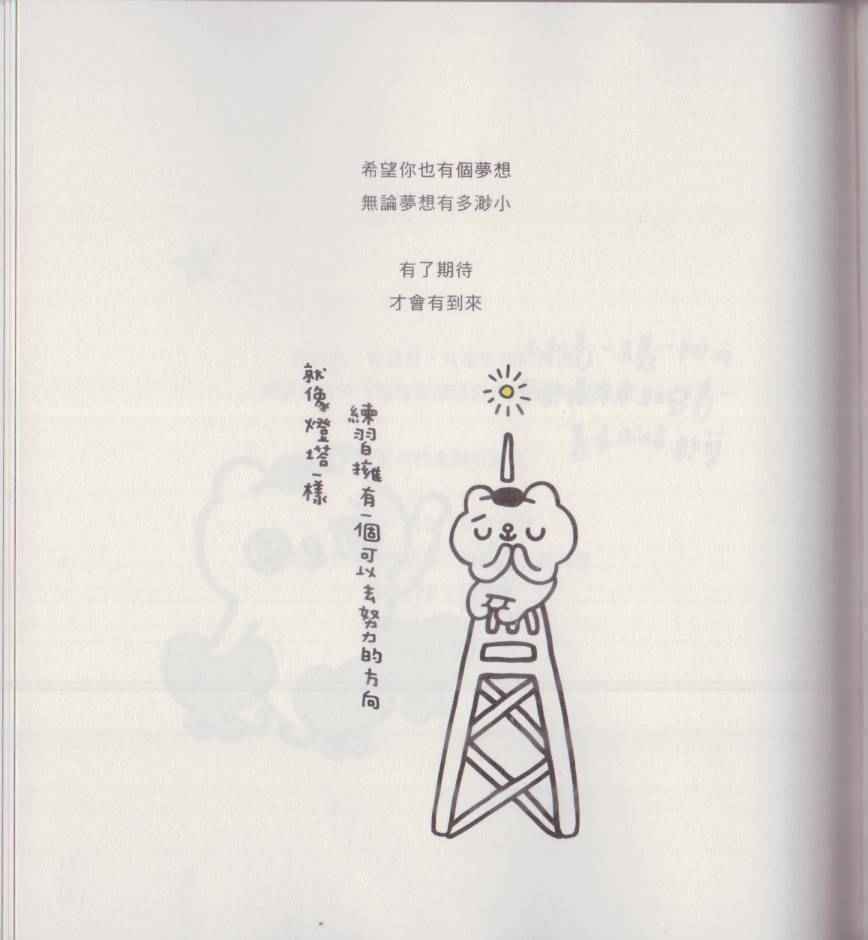 希望你也有個夢想
無論夢想有多渺小
有了期待
才會有到來
就像燈塔一樣
練習擁有一個可以去努力的方向